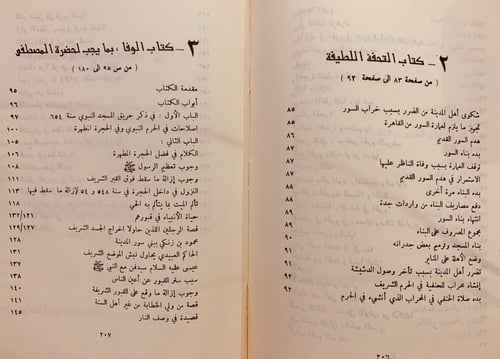 ٢ - كتاب التحفة اللطيفة
( من صفحة ٨٣ الى صفحة ٩٣ )
شكوى أهل المدينة من الضرر بسبب خراب السور ٨٥
تجهيز ما يلزم لعمارة السور من القاهرة ٨٥
هدم السور القديم ٨٦
بدء بناء السور ٨٧
توقف العمارة بسبب وفاة الناظر عليها ٨٧
الاستمرار في هدم السور القديم
بدء البناء مرة أخرى
دفع مصاريف البناء من واردات جدة
انتهاء بناء السور
مجموع المصروف على البناء
بناء المسجد وترميم بعض جدرانه
وضع الأهلة على المنابر
تضرر أهل المدينة بسبب تأخر وصول الدشيشة
إنشاء محراب للحنفية في الحرم الشريف
بدء صلاة الحنفي في المحراب الذي أنشيء في الحرم ٩٢
٢٠٦
٣ - كتاب الوفا ، بما يجب لحضرة المصطفى
( من ص ٩٥ الى ١٨٠ )
مقدمة الكتاب ٩٥
أبواب الكتاب ٩٦
الباب الأول : في ذكر حريق المسجد النبوي سنة ٦٥٤ ٩٧
اصلاحات في الحرم النبوي وفي الحجرة المطهرة ١٠٠
الباب الثاني : ١٠٥
الكلام في فضل الحجرة المطهرة
وجوب تعظيم الرسول ﷺ ١٠٨
وجوب إزالة ما سقط فوق القبر الشريف ١١١
النزول في داخل الحجرة في سنة ٥٤٨ و ٥٤ لإزالة ما سقط فيها ١١٣
تألم الميت بما يتألم به الحي ١١٨
حياة الأنبياء في قبورهم ١٢١/١٣٢
قصة الرجلين الذين حاولا اخراج الجسد الشريف ١٢٧/١٢٩
محمود بن زنكي يبني سور المدينة ١٢٨
الحاكم العبيدي يحاول نبش الموضع الشريف ١٣١
عيسى عليه السلام سيدفن مع النبي ﷺ
سبب ستر القبور عن أعين الناس ١٣٨
وجوب إزالة ما وقع على القبور الشريفة
قصة من ولي الخطابة من غير أهل السنة ١٤١
قصيدة في وصف النار ١٤٥
٢٠٧